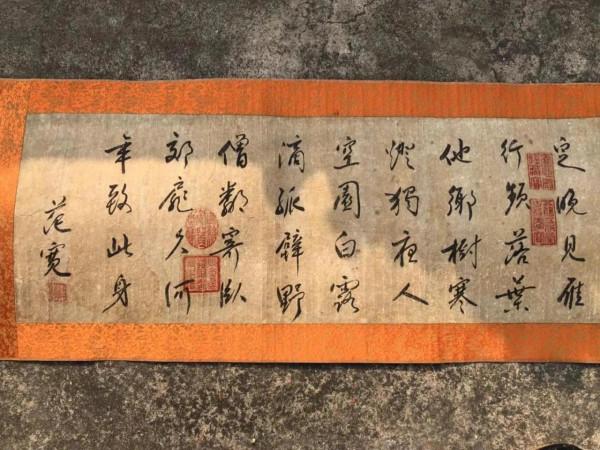 定晚見雁
行頻落葉
他鄉樹寒
燈獨夜人
空園白露
滴孤壁野
僧鄰寄臥
郊扉久何
年致此身
范寬